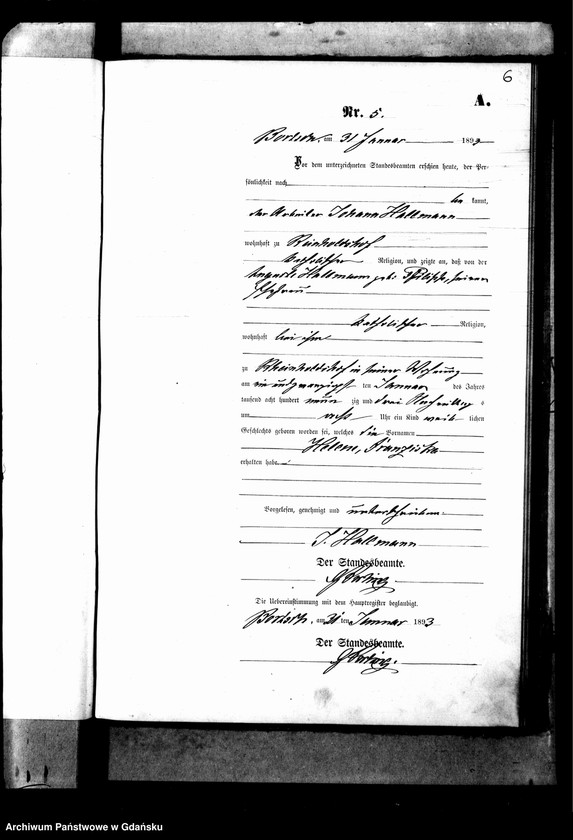 6
A.
Nr. 5.
am 31 Januar 1893
Vor dem unterzeichneten Standesbeamten erschien heute, der Per-
sönlichkeit nach
kannt,
der Arbeiter Johann Hallmann
wohnhaft zu Reinholdshof
katholischer Religion, und zeigte an, daß von der
Hallmann geb. seiner
Ehefrau
katholischer Religion,
wohnhaft bei ihm
zu Rheinholdshof in seiner Wohnung
am ein und zwanzigsten Januar des Jahres
tausend acht hundert neun zig und drei Nachmittag s
um sechs Uhr ein Kind weib lichen
Geschlechts geboren worden sei, welches die Vornamen
Helene, Franziska
erhalten habe
Vorgelesen, genehmigt und unterschrieben
J. Hallmann
Der Standesbeamte.
Die Uebereinstimmung mit dem Hauptregister beglaubigt.
am 31 ten Januar 1893
Der Standesbeamte.
Archiwum Państwowe w Gdańsku